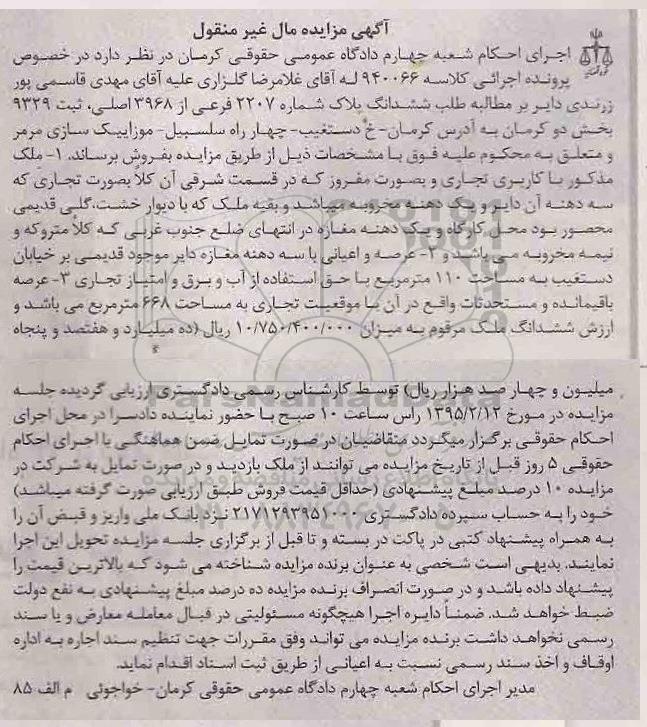 آگهی مزایده مال غیر منقول
اجرای احکام شعبه چهارم دادگاه عمومی حقوقی کرمان در نظر دارد در خصوص
پرونده اجرائی کلاسه ۹۴۰۰۶۶ له آقای غلامرضا گلزاری علیه آقای مهدی قاسمی پور
زرندی دایر بر مطالبه طلب ششدانگ پلاک شماره ۲۲۰۷ فرعی از ۳۹۶۸ اصلی، ثبت ۹۳۲۹
بخش دو کرمان به آدرس کرمان- خ دستغیب- چهار راه سلسبیل- موزاییک سازی مرمر
و متعلق به محکوم علیه فوق با مشخصات ذیل از طریق مزایده بفروش برساند. ۱- ملک
مذکور با کاربری تجاری و بصورت مفروز که در قسمت شرقی آن کلاً بصورت تجاری که
سه دهنه آن دایر و یک دهنه مخروبه میباشد و بقیه ملک که با دیوار خشت، گلی قدیمی
محصور بود محل کارگاه و یک دهنه مغازه در انتهای ضلع جنوب غربی که کلاً متروکه و
نیمه مخروبه می باشد و ۲- عرصه و اعیانی با سه دهنه مغازه دایر موجود قدیمی بر خیابان
دستغیب به مساحت ۱۱۰ مترمربع با حق استفاده از آب و برق و امتیاز تجاری ۳- عرصه
باقیمانده و مستحدثات واقع در آن با موقعیت تجاری به مساحت ۶۶۸ مترمربع می باشد و
ارزش ششدانگ ملک مرقوم به میزان ۱۰/۷۵۰/۴۰۰/۰۰۰ ریال (ده میلیارد و هفتصد و پنجاه
میلیون و چهار صد هزار ریال) توسط کارشناس رسمی دادگستری ارزیابی گردیده جلسه
مزایده در مورخ ۱۳۹۵/۲/۱۲ راس ساعت ۱۰ صبح با حضور نماینده دادسرا در محل اجرای
احکام حقوقی برگزار میگردد متقاضیان در صورت تمایل ضمن هماهنگی با اجرای احکام
حقوقی ۵ روز قبل از تاریخ مزایده می توانند از ملک بازدید و در صورت تمایل به شرکت در
مزایده ۱۰ درصد مبلغ پیشنهادی (حداقل قیمت فروش طبق ارزیابی صورت گرفته میباشد)
خود را به حساب سپرده دادگستری ۲۱۷۱۲۹۳۹۵۱۰۰۰ نزد بانک ملی واریز و قبض آن را
به همراه پیشنهاد کتبی در پاکت در بسته و تا قبل از برگزاری جلسه مزایده تحویل این اجرا
نمایند. بدیهی است شخصی به عنوان برنده مزایده شناخته می شود که بالاترین قیمت را
پیشنهاد داده باشد و در صورت انصراف برنده مزایده ده درصد مبلغ پیشنهادی به نفع دولت
ضبط خواهد شد. ضمناً دایره اجرا هیچگونه مسئولیتی در قبال معامله معارض و یا سند
رسمی نخواهد داشت برنده مزایده می تواند وفق مقررات جهت تنظیم سند اجاره به اداره
اوقاف و اخذ سند رسمی نسبت به اعیانی از طریق ثبت اسناد اقدام نماید.
مدیر اجرای احکام شعبه چهارم دادگاه عمومی حقوقی کرمان- خواجوئی م الف ۸۵